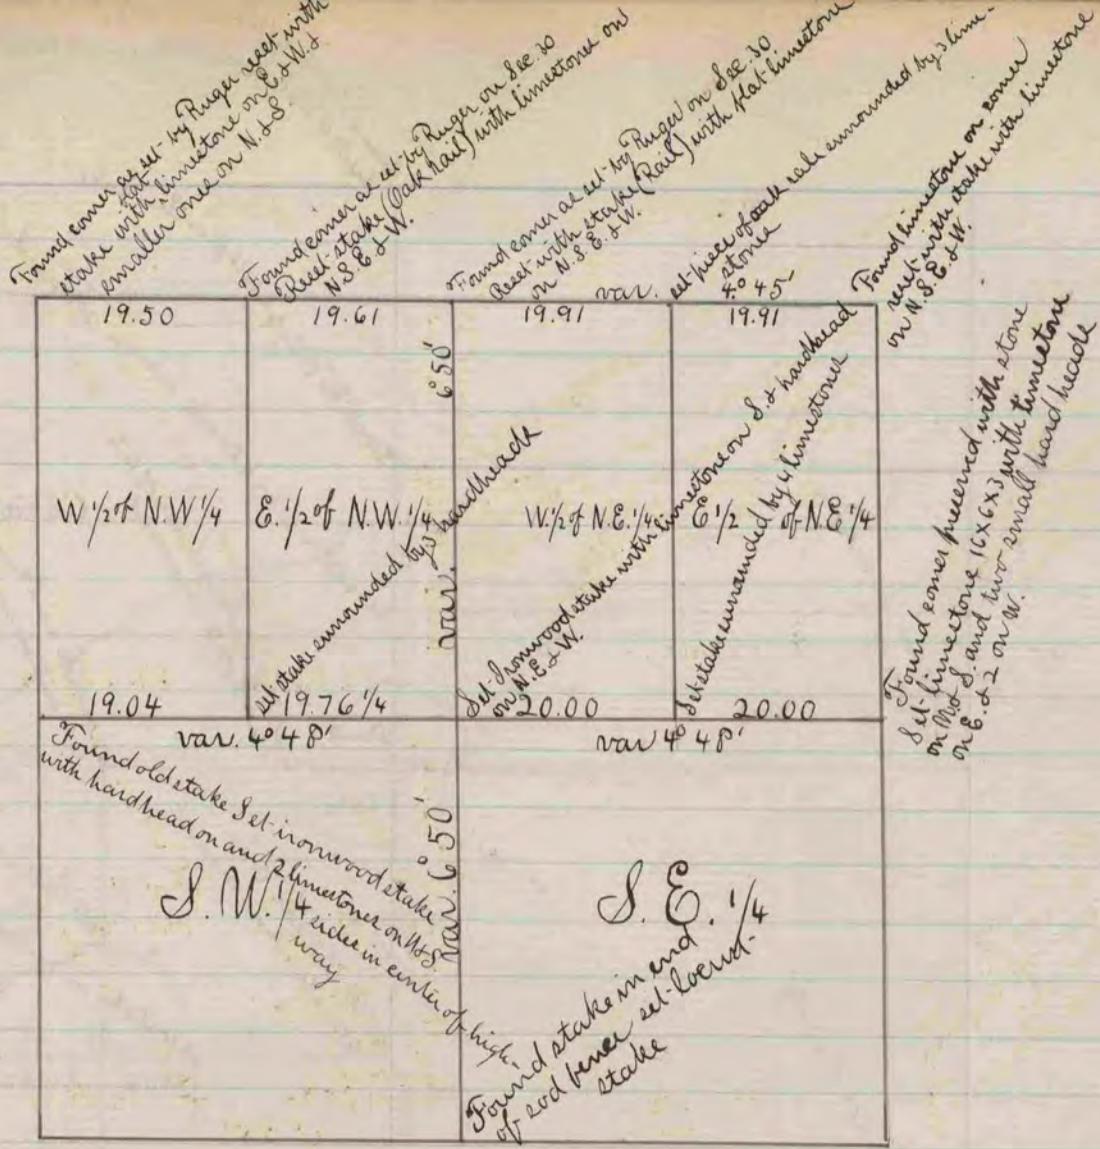 Found corner as set by Ruger reset with
flat
stake with limestone on E. & W. &
smaller ones on N. & S.
Found corner as set by Ruger on Sec. 30
Reset stake (Oak Rail) with limestones on
N. S. E. & W.
Found corner as set by Ruger on Sec. 30
Reset with stake (Rail) with flat limestone
on N. S. E. & W.
set piece of oak rail surrounded by 3 lime-
stones
Found limestone on corner
reset with stake with limestone
on N. S. E. & W.
var. 4° 45
19.50
19.61
19.91
19.91
6° 50'
var.
W 1/2 of N.W 1/4
E. 1/2 of N.W. 1/4
W. 1/2 of N.E. 1/4
E 1/2 of N.E 1/4
set stake surrounded by 3 hardheads
Set Ironwood stake with limestone on S. & hardhead
on N. E. & W.
Set stake surrounded by 4 limestones
Found corner preserved with stone
Set limestone 16x6x3 with limestone
on N. & S. and two small hard heads
on E. & 2 on W.
19.04
19.76 1/4
20.00
20.00
var. 4° 48'
var 4° 48'
Found old stake Set ironwood stake
with hardhead on and 2 limestones on N & S.
sides in center of high-
way
var. 6° 50'
S. W. 1/4
S. E. 1/4
Found stake in end
of sod fence set locust
stake